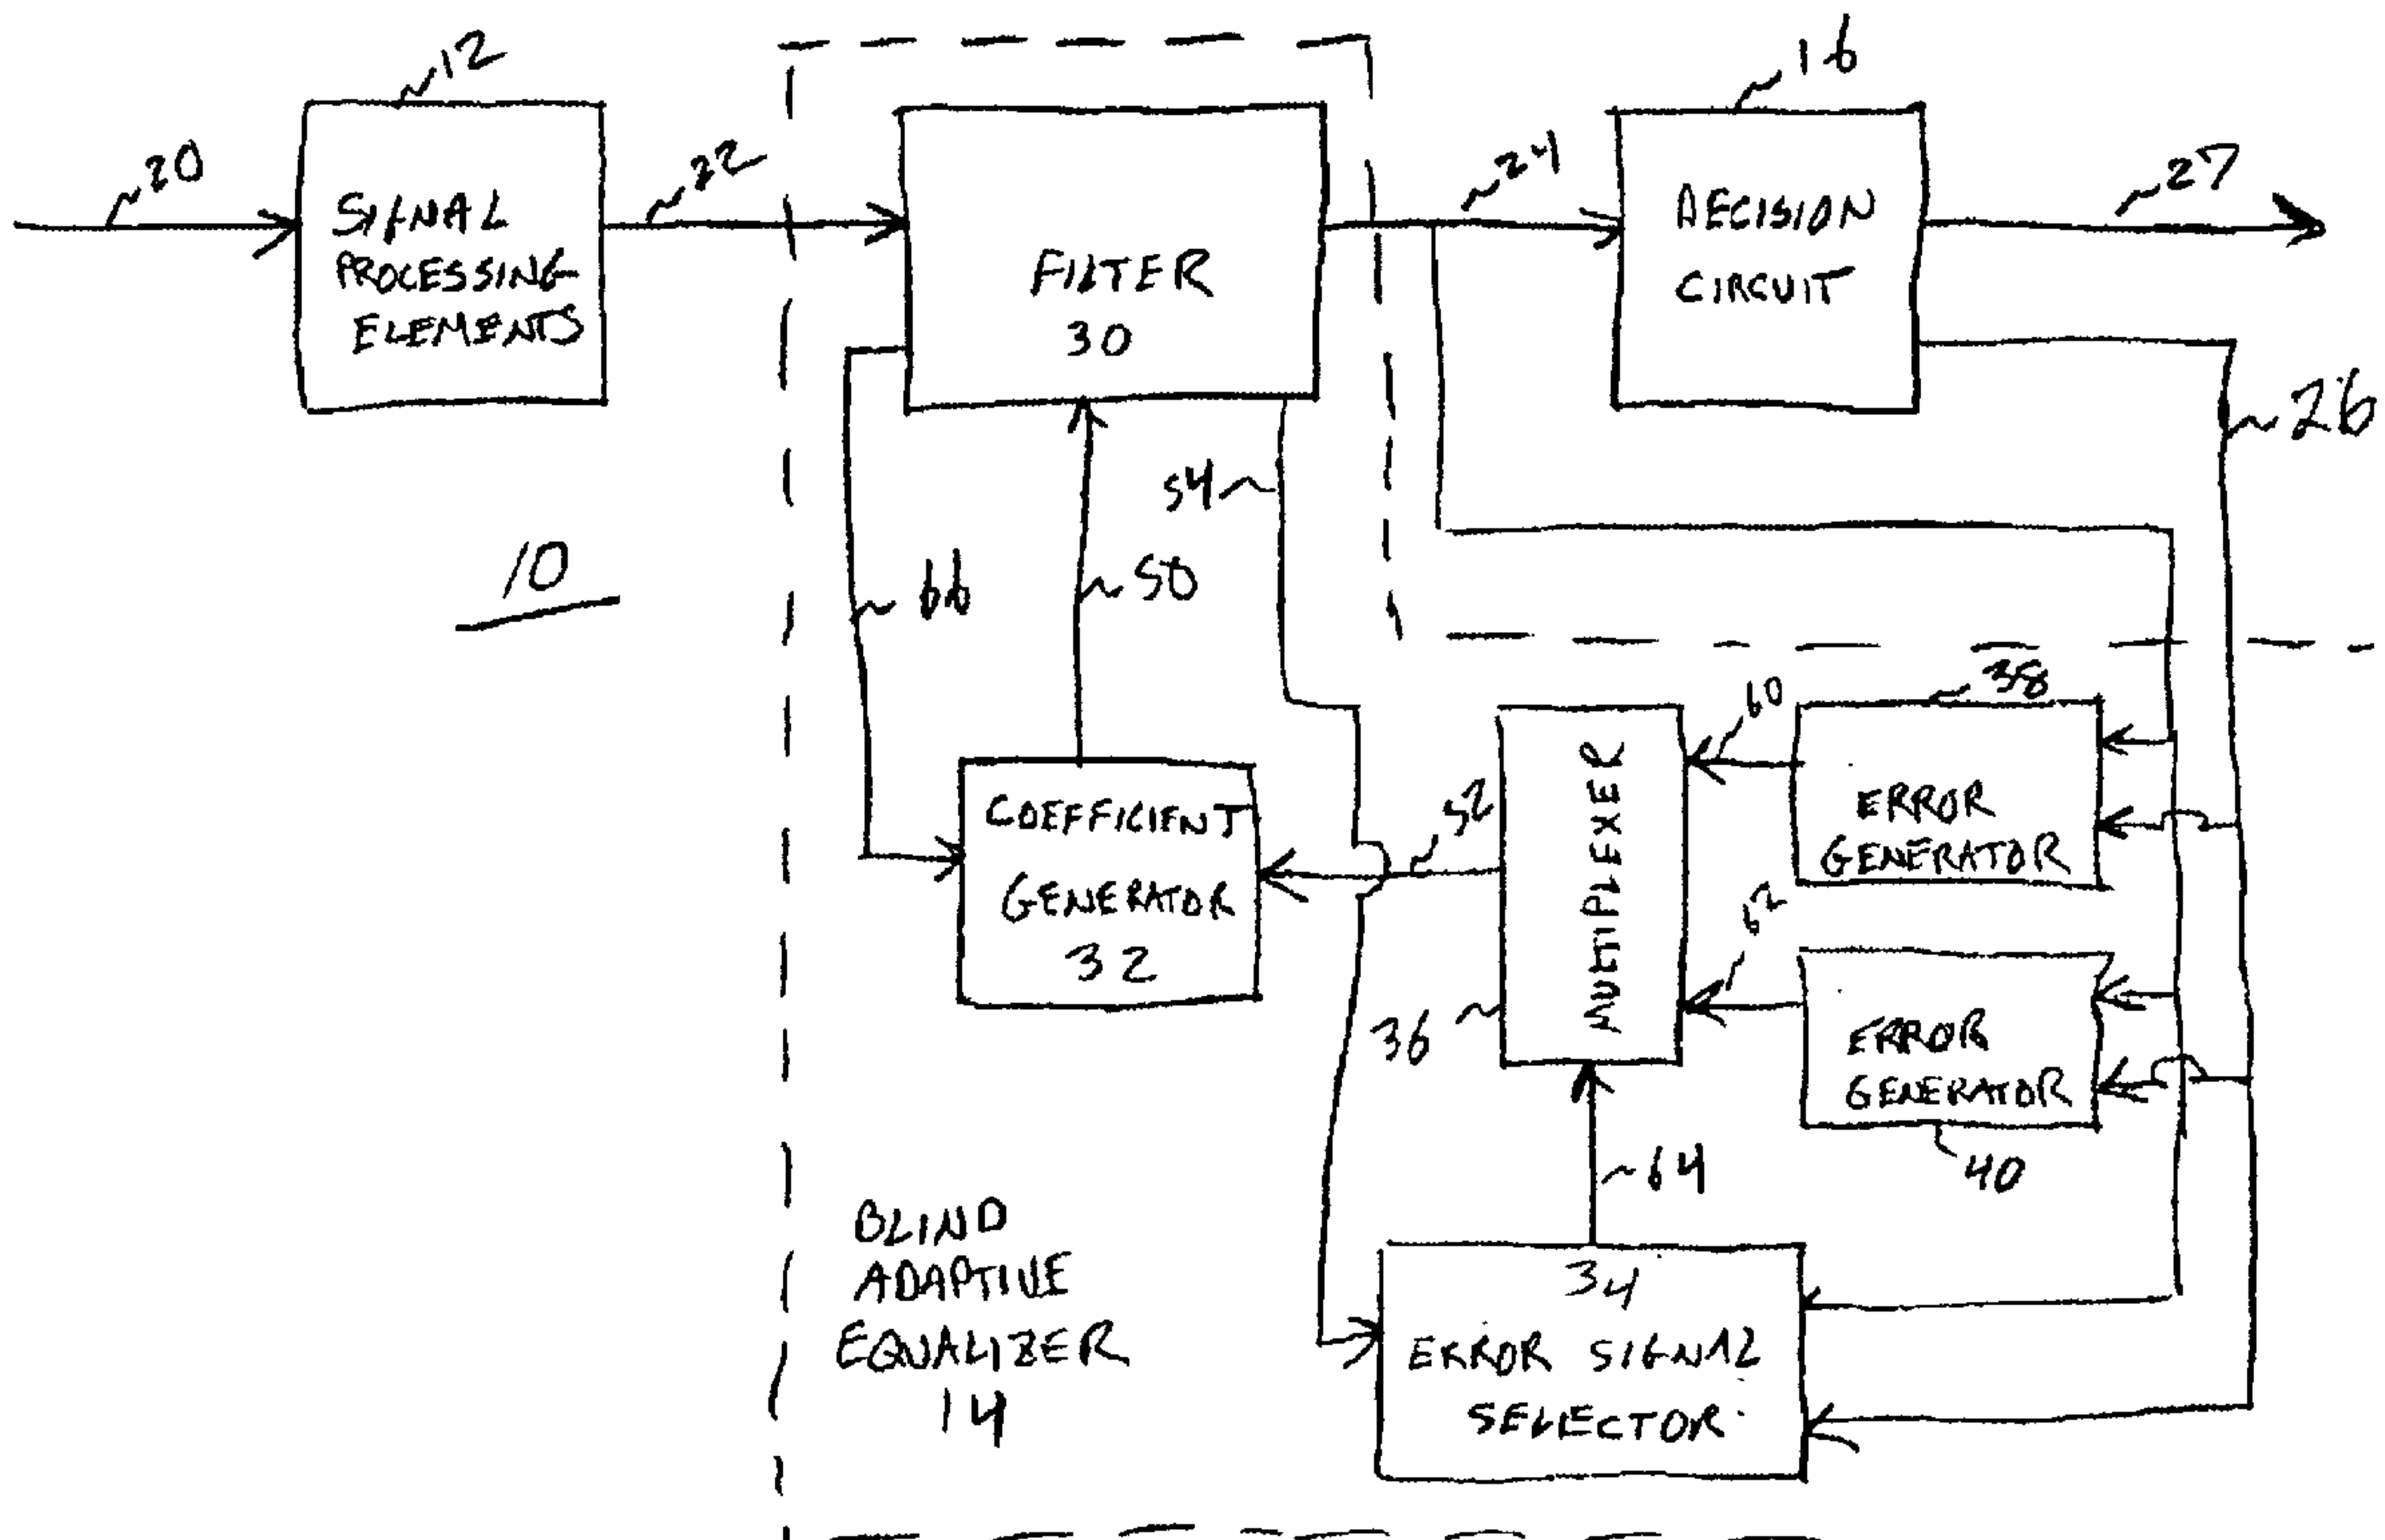 12
16
20
22
24
27
SIGNAL
PROCESSING
ELEMENTS
FILTER
30
DECISION
CIRCUIT
26
54
10
66
50
38
60
COEFFICIENT
GENERATOR
32
52
MULTIPLEXER
36
ERROR
GENERATOR
62
ERROR
GENERATOR
40
64
BLIND
ADAPTIVE
EQUALIZER
14
34
ERROR SIGNAL
SELECTOR